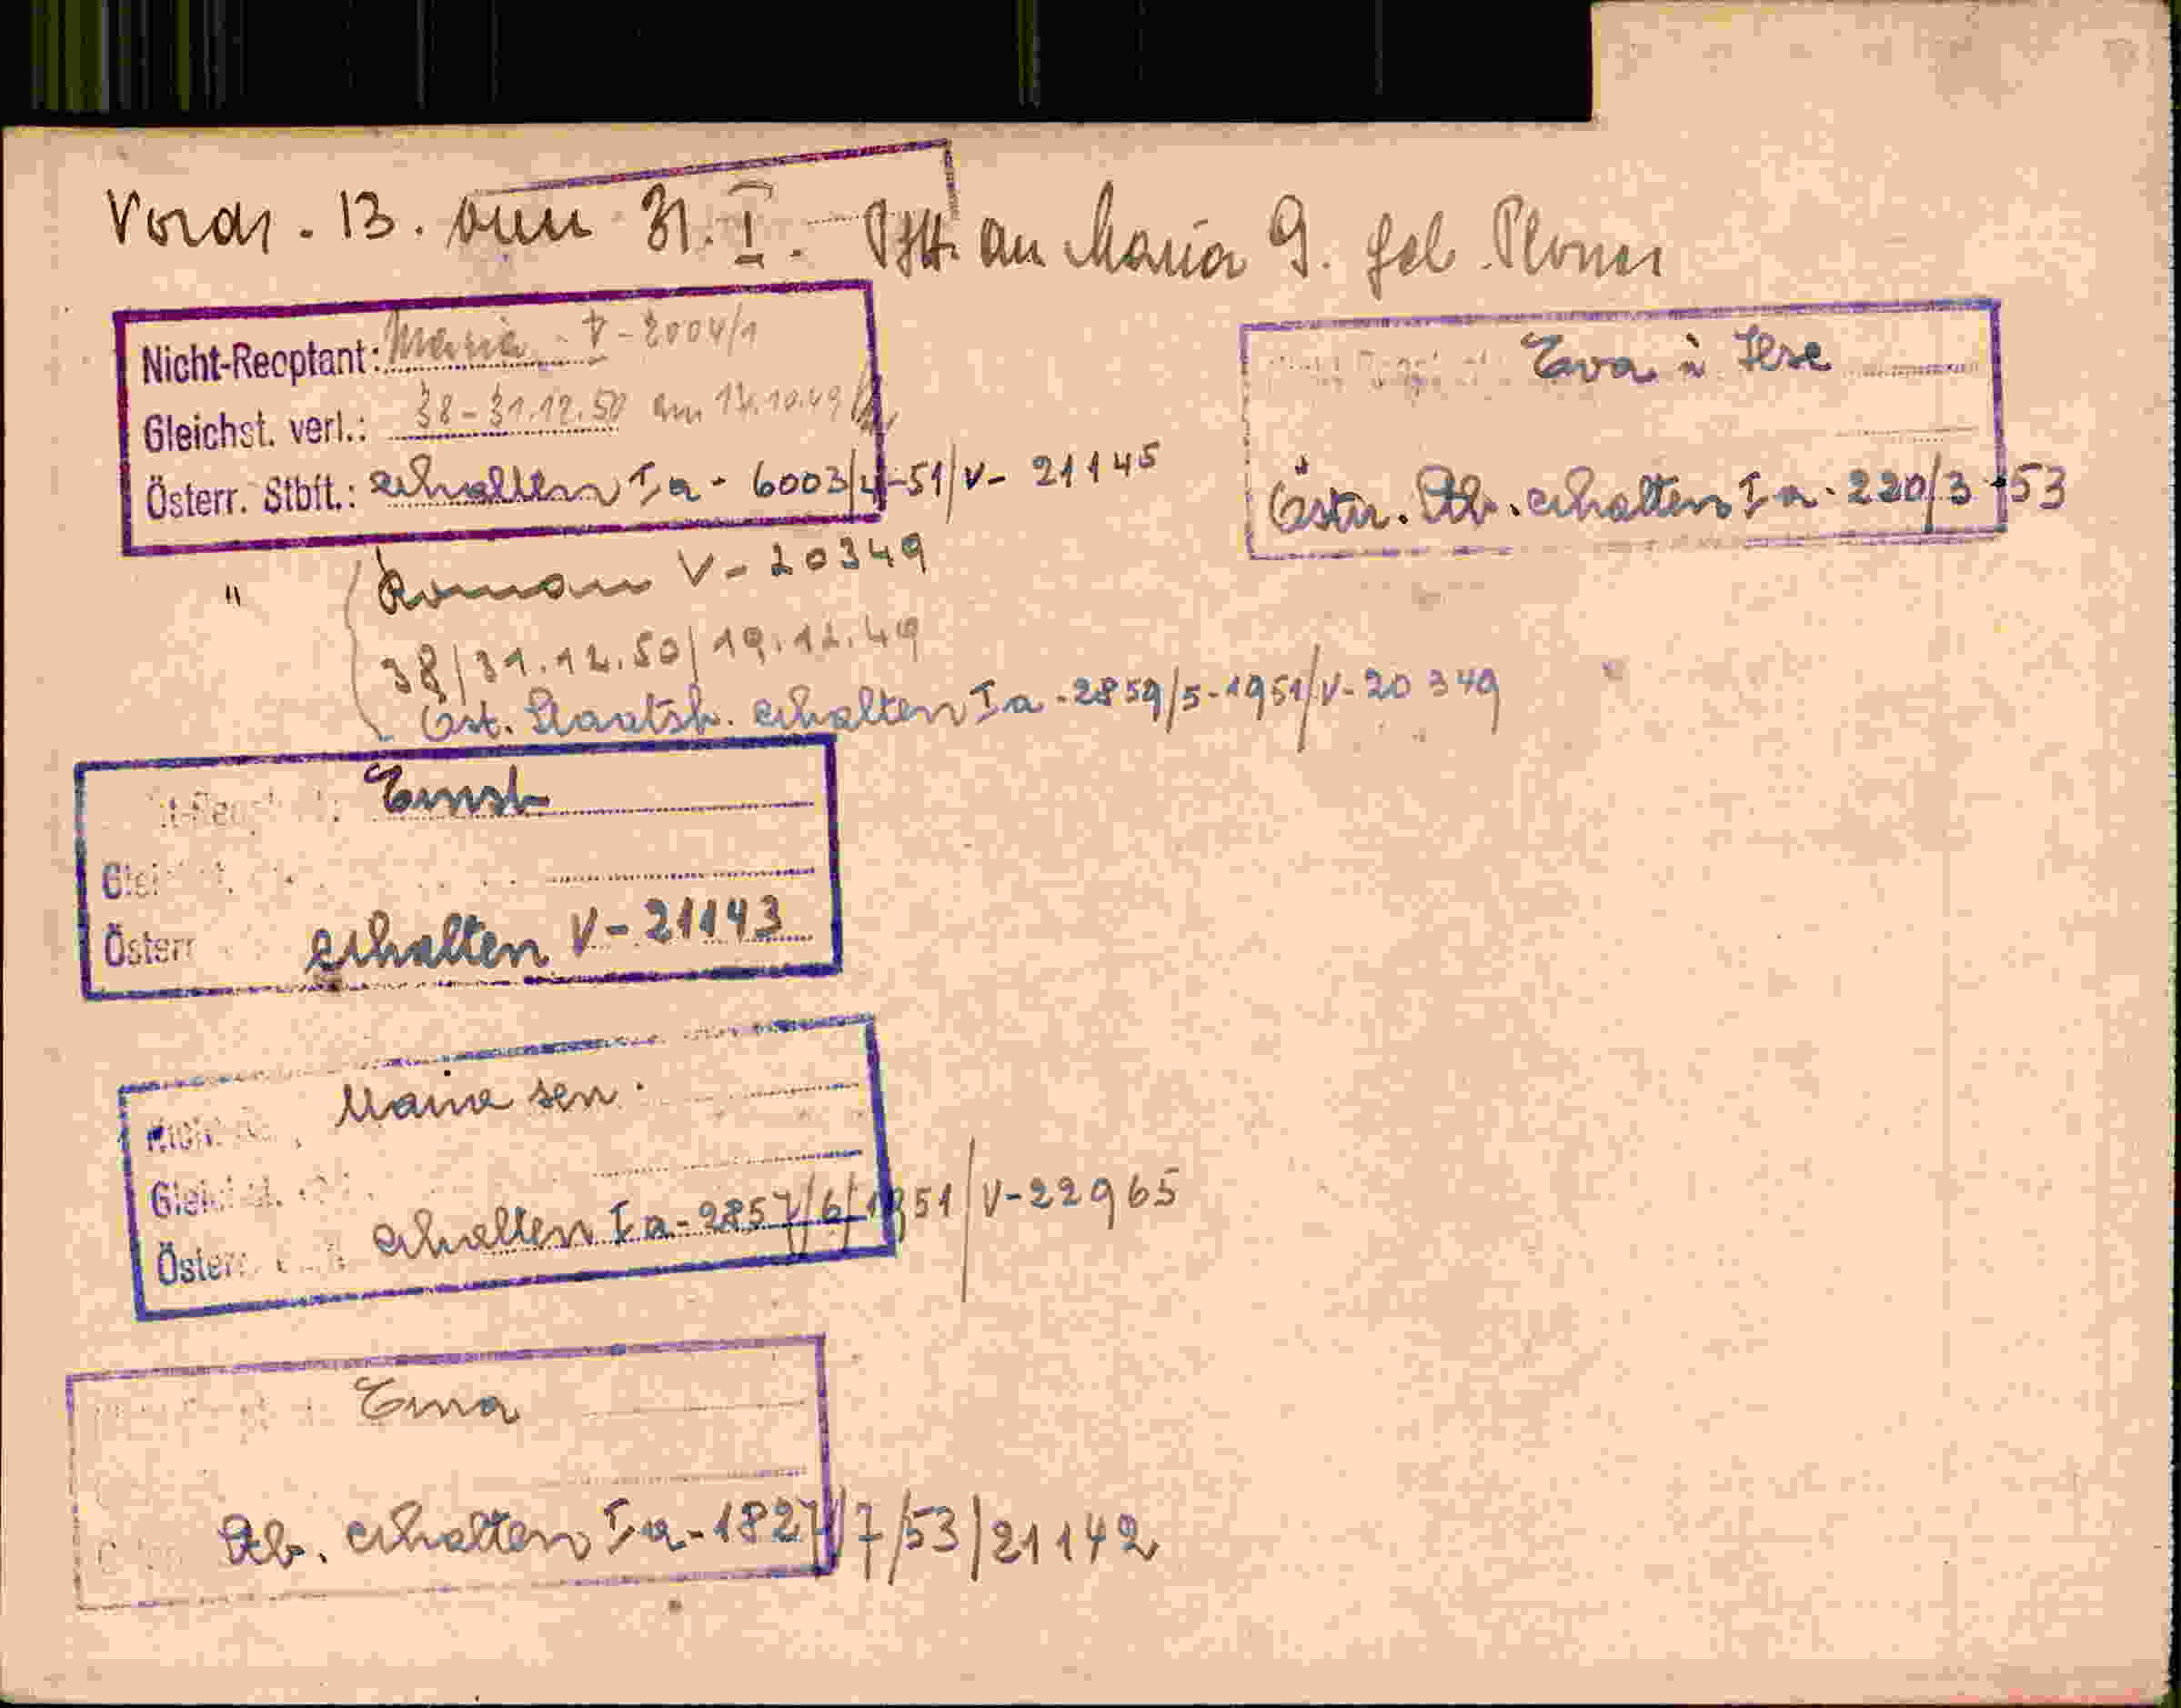 Vordr. 13. vom 31. I. - an Maria G. geb. Ploner
Nicht-Reoptant: Maria - V-2004/1
Gleichst. verl.: 38-31.12.50 am 12.10.49
Österr. Stbft.: erhalten Ia - 6003/4-51/V- 21145
Eva u Ilse
Östr. Stb. erhalten Ia - 220/3-53
" Roman V-20349
38/31.12.50/19.12.49
Öst. Staatsb. erhalten Ia - 2859/5-1951/V-20349
Ernst
Österr erhalten V-21143
Maria sen.
Österr erhalten Ia-2857/6/1951/V-22965
Erna
Stb. erhalten Ia-1827/7/53/21142